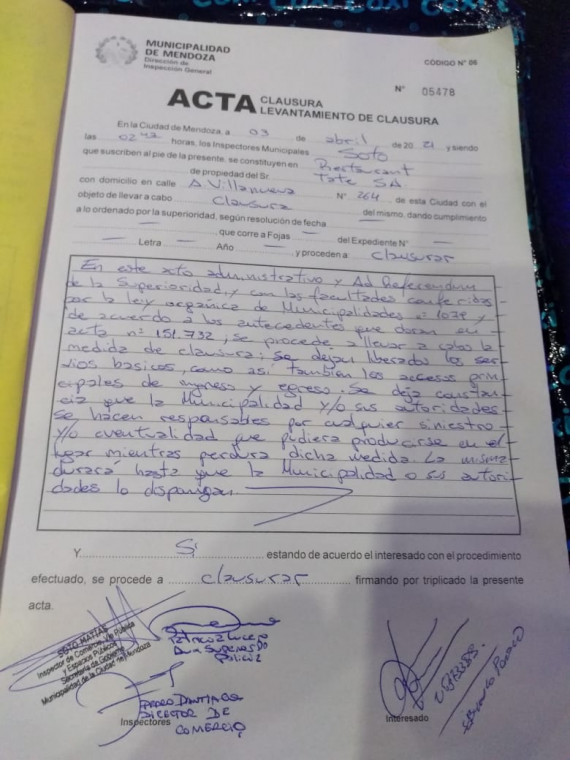 MUNICIPALIDAD
DE MENDOZA
Dirección de
Inspección General
CÓDIGO N° 06
N° 05478
ACTA CLAUSURA
LEVANTAMIENTO DE CLAUSURA
En la Ciudad de Mendoza, a 03 de abril de 20 21 y siendo
las 02 horas, los Inspectores Municipales Soto
que suscriben al pie de la presente, se constituyen en Restaurant
de propiedad del Sr. Tate SA
con domicilio en calle A. Villanueva N° 264 de esta Ciudad con el
objeto de llevar a cabo Clausura del mismo, dando cumplimiento
a lo ordenado por la superioridad, según resolución de fecha —
— que corre a Fojas — del Expediente N° —
— Letra — Año — , y proceden a clausurar
En este acto administrativo y Ad Referendum
de la Superioridad, y con las facultades conferidas
por la ley orgánica de Municipalidades n° 1079 y
de acuerdo a los antecedentes que obran en
acta n° 151.732, se procede a llevar a cabo la
medida de clausura; se dejan liberados los ser-
vicios básicos, como así también los accesos prin-
cipales de ingreso y egreso. Se deja constan-
cia que la Municipalidad y/o sus autoridades
se hacen responsables por cualquier siniestro
y/o eventualidad que pudiera producirse en el
lugar mientras perdura dicha medida. La misma
durará hasta que la Municipalidad o sus autori-
dades lo dispongan.
Y Si estando de acuerdo el interesado con el procedimiento
efectuado, se procede a clausurar firmando por triplicado la presente
acta.
SOTO MATIAS
Inspector de Comercio, Vía Pública
y Espacios Públicos
Secretaría de Gobierno
Municipalidad de la Ciudad de Mendoza
DIRECTOR DE
COMERCIO
Inspectores
Interesado